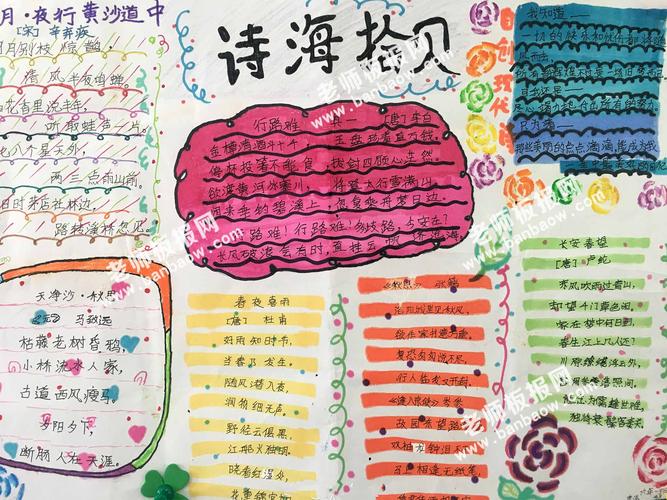 月·夜行黄沙道中
[宋]辛弃疾
月别枝惊鹊,
清风半夜鸣蝉。
花香里说丰年,
听取蛙声一片。
七八个星天外,
两三点雨山前。
旧时茅店社林边,
路转溪桥忽见。
诗海拾贝
行路难 其一 [唐]李白
金樽清酒斗十千 玉盘珍羞直万钱
停杯投箸不能食 拔剑四顾心茫然
欲渡黄河冰塞川 将登太行雪满山
闲来垂钓碧溪上 忽复乘舟梦日边
行路难!行路难!多歧路,今安在?
长风破浪会有时,直挂云帆济沧海
自创现代诗
我知道——
只为着——
天净沙·秋思
马致远
枯藤老树昏鸦,
小桥流水人家,
古道西风瘦马。
夕阳西下,
断肠人在天涯。
春夜喜雨
[唐] 杜甫
好雨知时节,
当春乃发生。
随风潜入夜,
润物细无声。
野径云俱黑,
江船火独明。
晓看红湿处,
花重锦官城
《秋思》 张籍
洛阳城里见秋风,
欲作家书意万重。
复恐匆匆说不尽,
行人临发又开封。
《逢入京使》 岑参
故园东望路
双袖龙钟泪
马上相逢无纸笔,
长安春望
[唐] 卢纶
东风吹雨过青山,
却望千门草色闲。
家在梦中何日到,
春生江上几人还?
川原缭绕浮云外,
宫阙参差落照间。
谁念为儒逢世难,
独将衰鬓客秦关。
老师板报网
www.banbaow.com
老师板报网
www.banbaow.com
老师板报网
www.banbaow.com
老师板报网
www.banbaow.com